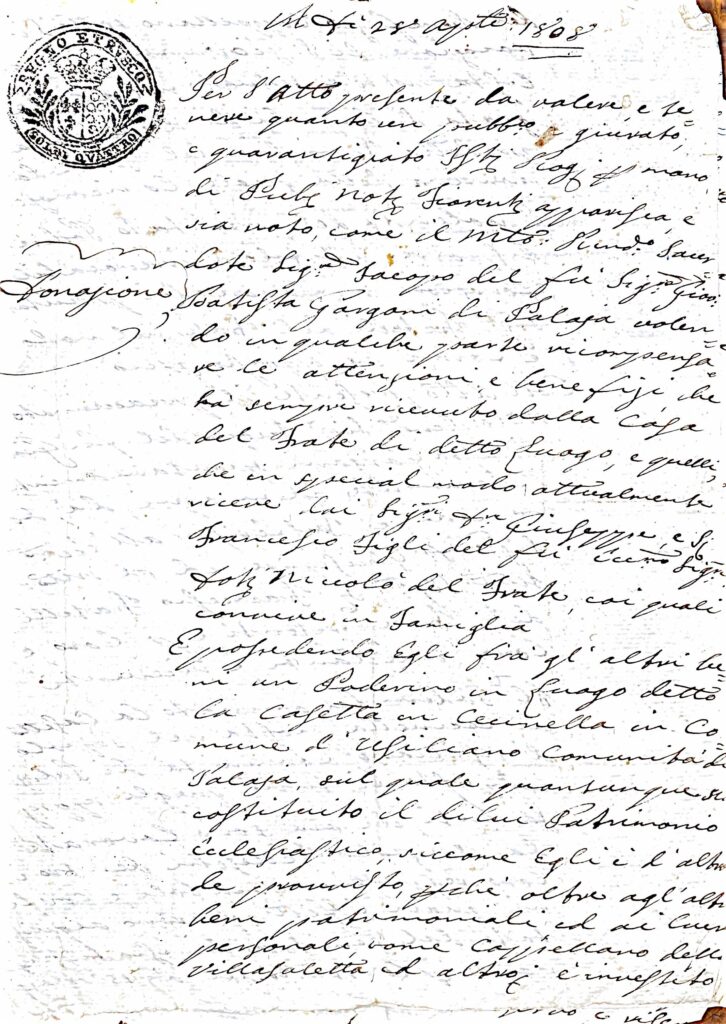 A dì 28 Agosto 1808
REGNO ETRUSCO
Per l'Atto presente da valere, e te=
nere quanto un pubb.o e giurato,
e guarantigiato mano
di Pub. Not. Fiorent. apparisca, e
sia noto, come il Mto. Rend.o Sacer=
dote Sig.r Jacopo del fù Sig.r Gio:
Donazione
Batista Gargani di Palaja volen=
do in qualche parte ricompensa=
re le attenzioni, e benefizj che
ha sempre ricevuto dalla Casa
del Frate di detto Luogo, e quelli,
che in special modo attualmente
riceve dai Sig.ri Giuseppe, e
Francesco Figli del fù Sig.r
Dott. Niccolò del Frate, coi quali
convive in Famiglia
E possedendo Egli frà gl'altri be=
ni un Poderino in Luogo detto
la Casetta in Cecinella in Co=
mune d'Usiliano Comunità di
Palaja, sul quale quantunque
costituito il dilui Patrimonio
Ecclesiastico, siccome Egli è d'altron
de provvisto, oltre agl'altri
beni patrimoniali ed ai
personali come Cappellano della
Villasaletta, ed altro, è investito